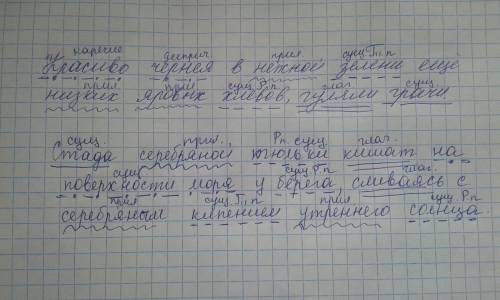 нареч. нареч. дееприч. прил. сущ. П.п
Красиво чернея в нежной зелени ещё
прил. прил. сущ. Р.п глаг. сущ.
низких яровых хлебов, гуляли грачи.
сущ. прил. Р.п. сущ. глаг.
Стада серебряной тюльки кишат на
сущ. сущ Р.п глаг.
поверхности моря у берега, сливаясь с
прил сущ. Т.п прил сущ. Р.п
серебряным кипением утреннего солнца.